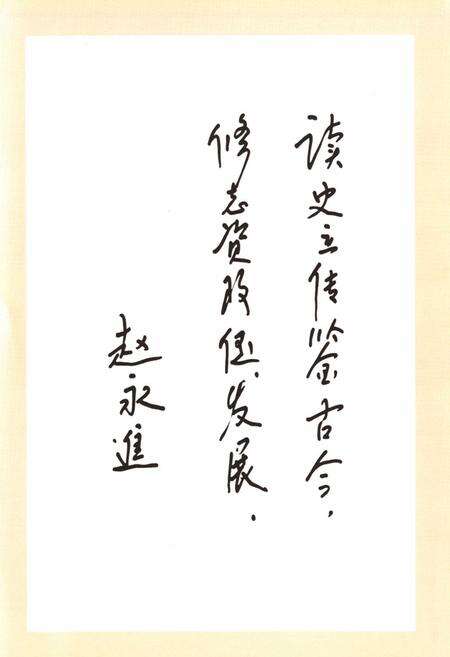 读史立传鉴古今，
修志资政促发展．
赵永進